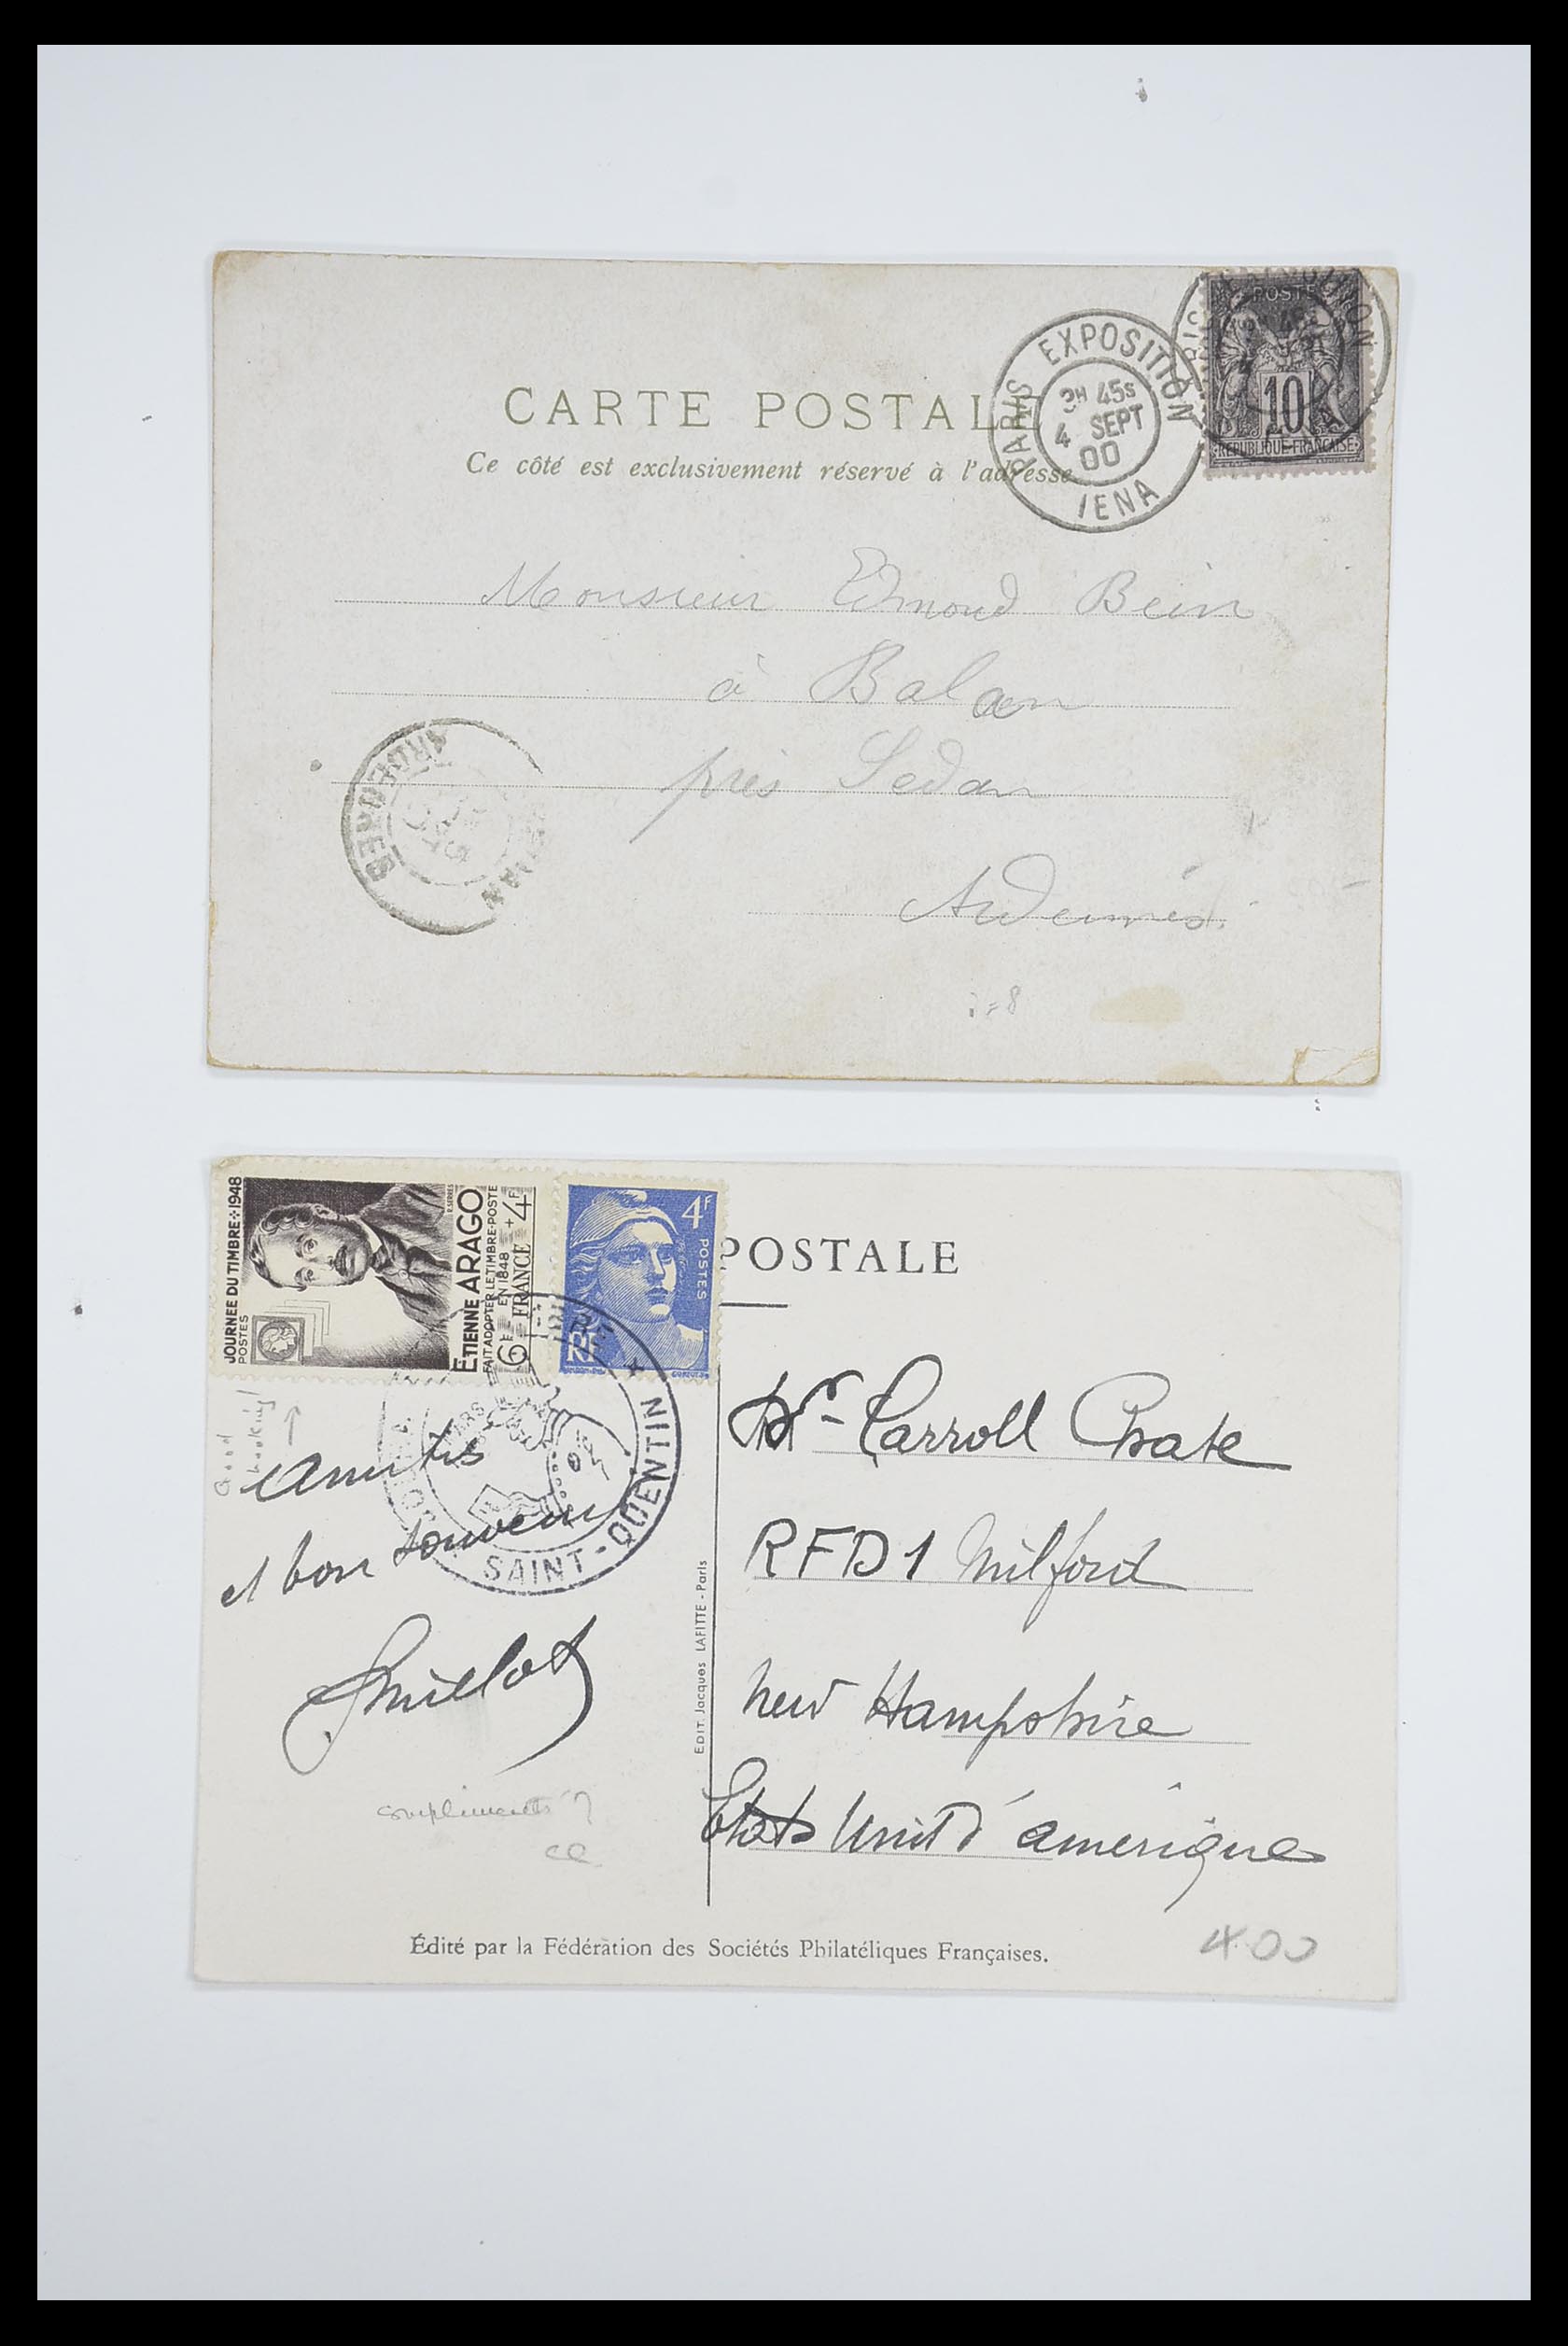 CARTE POSTALE
Ce côté est exclusivement réservé à l'adresse
PARIS EXPOSITION
3H 45S
4 SEPT
00
IENA
POSTE
10
REPUBLIQUE FRANÇAISE
Monsieur Edmond Bein
à Balan
près Sedan
Ardennes.
SEDAN
ARDENNES
JOURNEE DU TIMBRE 1948
POSTES
ETIENNE ARAGO
FAIT ADOPTER LE TIMBRE-POSTE
EN 1848
6F FRANCE +4F
4F
POSTES
RF
POSTALE
SAINT-QUENTIN
Good
looking!
Amitiés
et bon souvenir
compliments?
Mr - Carroll Chase
RFD1 Milford
New Hampshire
Etats Unit d'amerique
EDIT. Jacques LAFITTE - Paris
Édité par la Fédération des Sociétés Philatéliques Françaises.
400